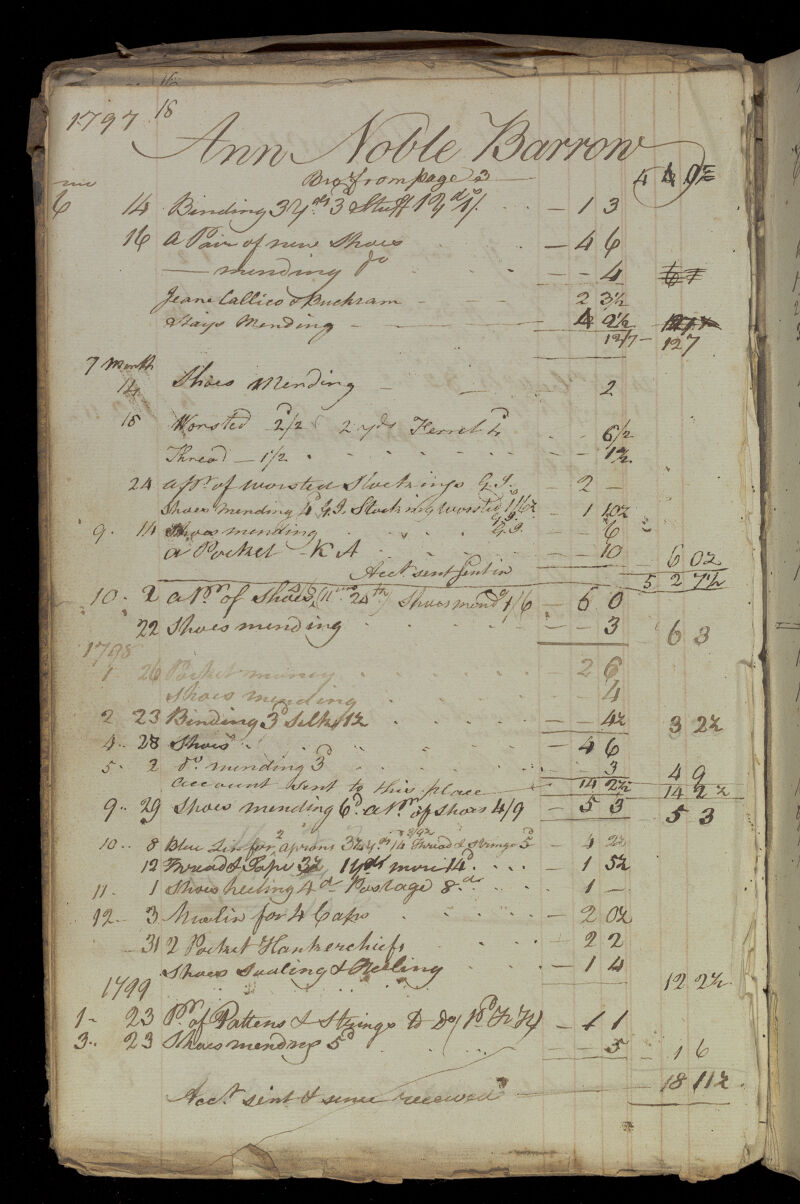 1797 18
Ann Noble Barrow
Brot from page 3 4 4 0½
mo
6 14 Binding 3 Yds 3d Stuff 1 Yd 1/. — 1 3
16 a Pair of new Shoes — 4 6
— mending do — — 4
Jeane Callico & Buckram 2 3½
Stays Mending 4 2½
12/7 — 12 7
7 Month
14 Shoes Mending — 2
15 Worsted 2d/2 2 yds Ferret 4d — 6/2
Thread — 1/2 — 1½
24 a pr. of worsted Stockings G.I. — 2 —
Shoes mending 4d G.I. Stocking worsted — 1 10½
9 .. 14 Shoes mending G.I. — 6
a Pocket — K A — 10 6 0½
Acct. sent Sent in 5 2 7½
10 .. 2 a Pr. of Shoes 4/6 (11 mo 24th) Shoes mendg 1/6 — 6 0
22 Shoes mending — — 3 6 3
1798
1 26 Pocket money 2 6
Shoes mending — 4
2 23 Binding 3d Silk 1½ — — 4½ 3 2½
4 .. 28 Shoes — 4 6
5 .. 2 do. mending 3d — 3 4 9
account sent to this place — 14 2½ 14 2½
9 .. 29 Shoes mending 6d. a Pr. of Shoes 4/9 — 5 3 5 3
10 .. 8 Blue Lin for 2 aprons 3¼ yds 14 Thread & Strings 5d — 4 2½
12 Thread & Tape 3½, 1 yd more 14d. — 1 5½
11 .. 1 Shoes heeling 4d Postage 8d. — 1 —
12 .. 3 Muslin for 4 Caps — 2 0½
31 2 Pocket Hankerchiefs — 2 2
Shoes Soaling & Heeling — 1 4
1799 12 2½
1 - 23 Pr. of Pattens & Strings to do — 1 1
3 .. 23 Shoes mending 5d — — 5 — 1 6
— 18 11½
Acct. sent & since received